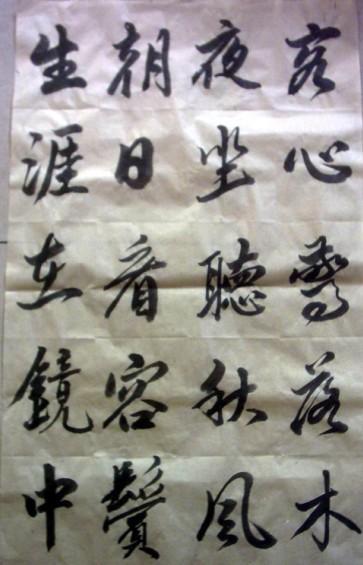 客心驚落木
夜坐聽秋風
朝日看容鬢
生涯在鏡中